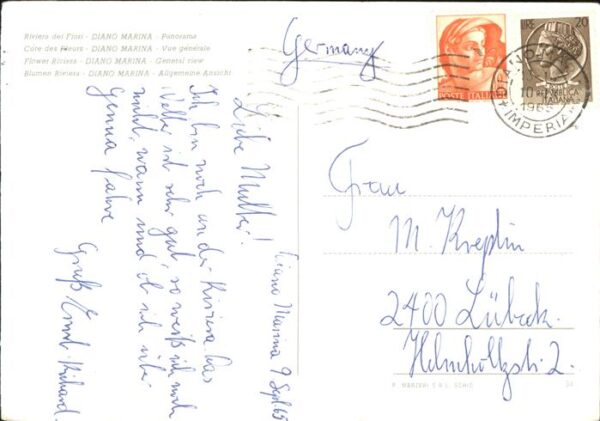 Riviera dei Fiori - DIANO MARINA - Panorama
Côte des Fleurs - DIANO MARINA - Vue générale
Flower Riviera - DIANO MARINA - General view
Blumen Riviera - DIANO MARINA - Allgemeine Ansicht
Germany
POSTE ITALIANE
LIRE 20
REPUBBLICA
ITALIANA
DIANO
10
1965
IMPERIA
Diano Marina 9 Sept 65
Liebe Mutter!
Ich bin noch an der Riviera. Das
Wetter ist sehr gut, so weiß ich noch
nicht, wann und ob ich über
Genua fahre
Gruß Ernst-Richard
Frau
M. Kreplin
2400 Lübeck
Helmholtzstr. 2.